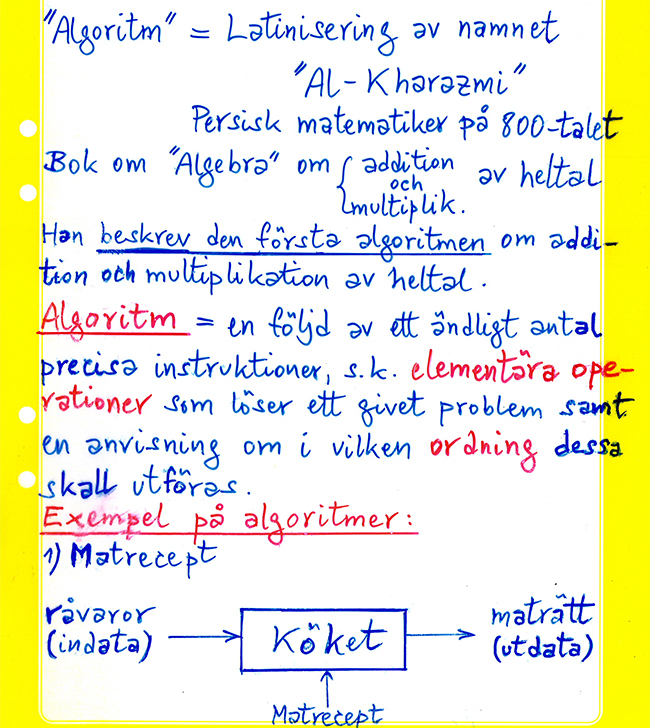 "Algoritm" = Latinisering av namnet
"Al-Kharazmi"
Persisk matematiker på 800-talet
Bok om "Algebra" om { addition och multiplik. av heltal
Han beskrev den första algoritmen om addi-
tion och multiplikation av heltal.
Algoritm = en följd av ett ändligt antal
precisa instruktioner, s.k. elementära ope-
rationer som löser ett givet problem samt
en anvisning om i vilken ordning dessa
skall utföras.
Exempel på algoritmer:
1) Matrecept
råvaror
(indata)
Köket
maträtt
(utdata)
Matrecept